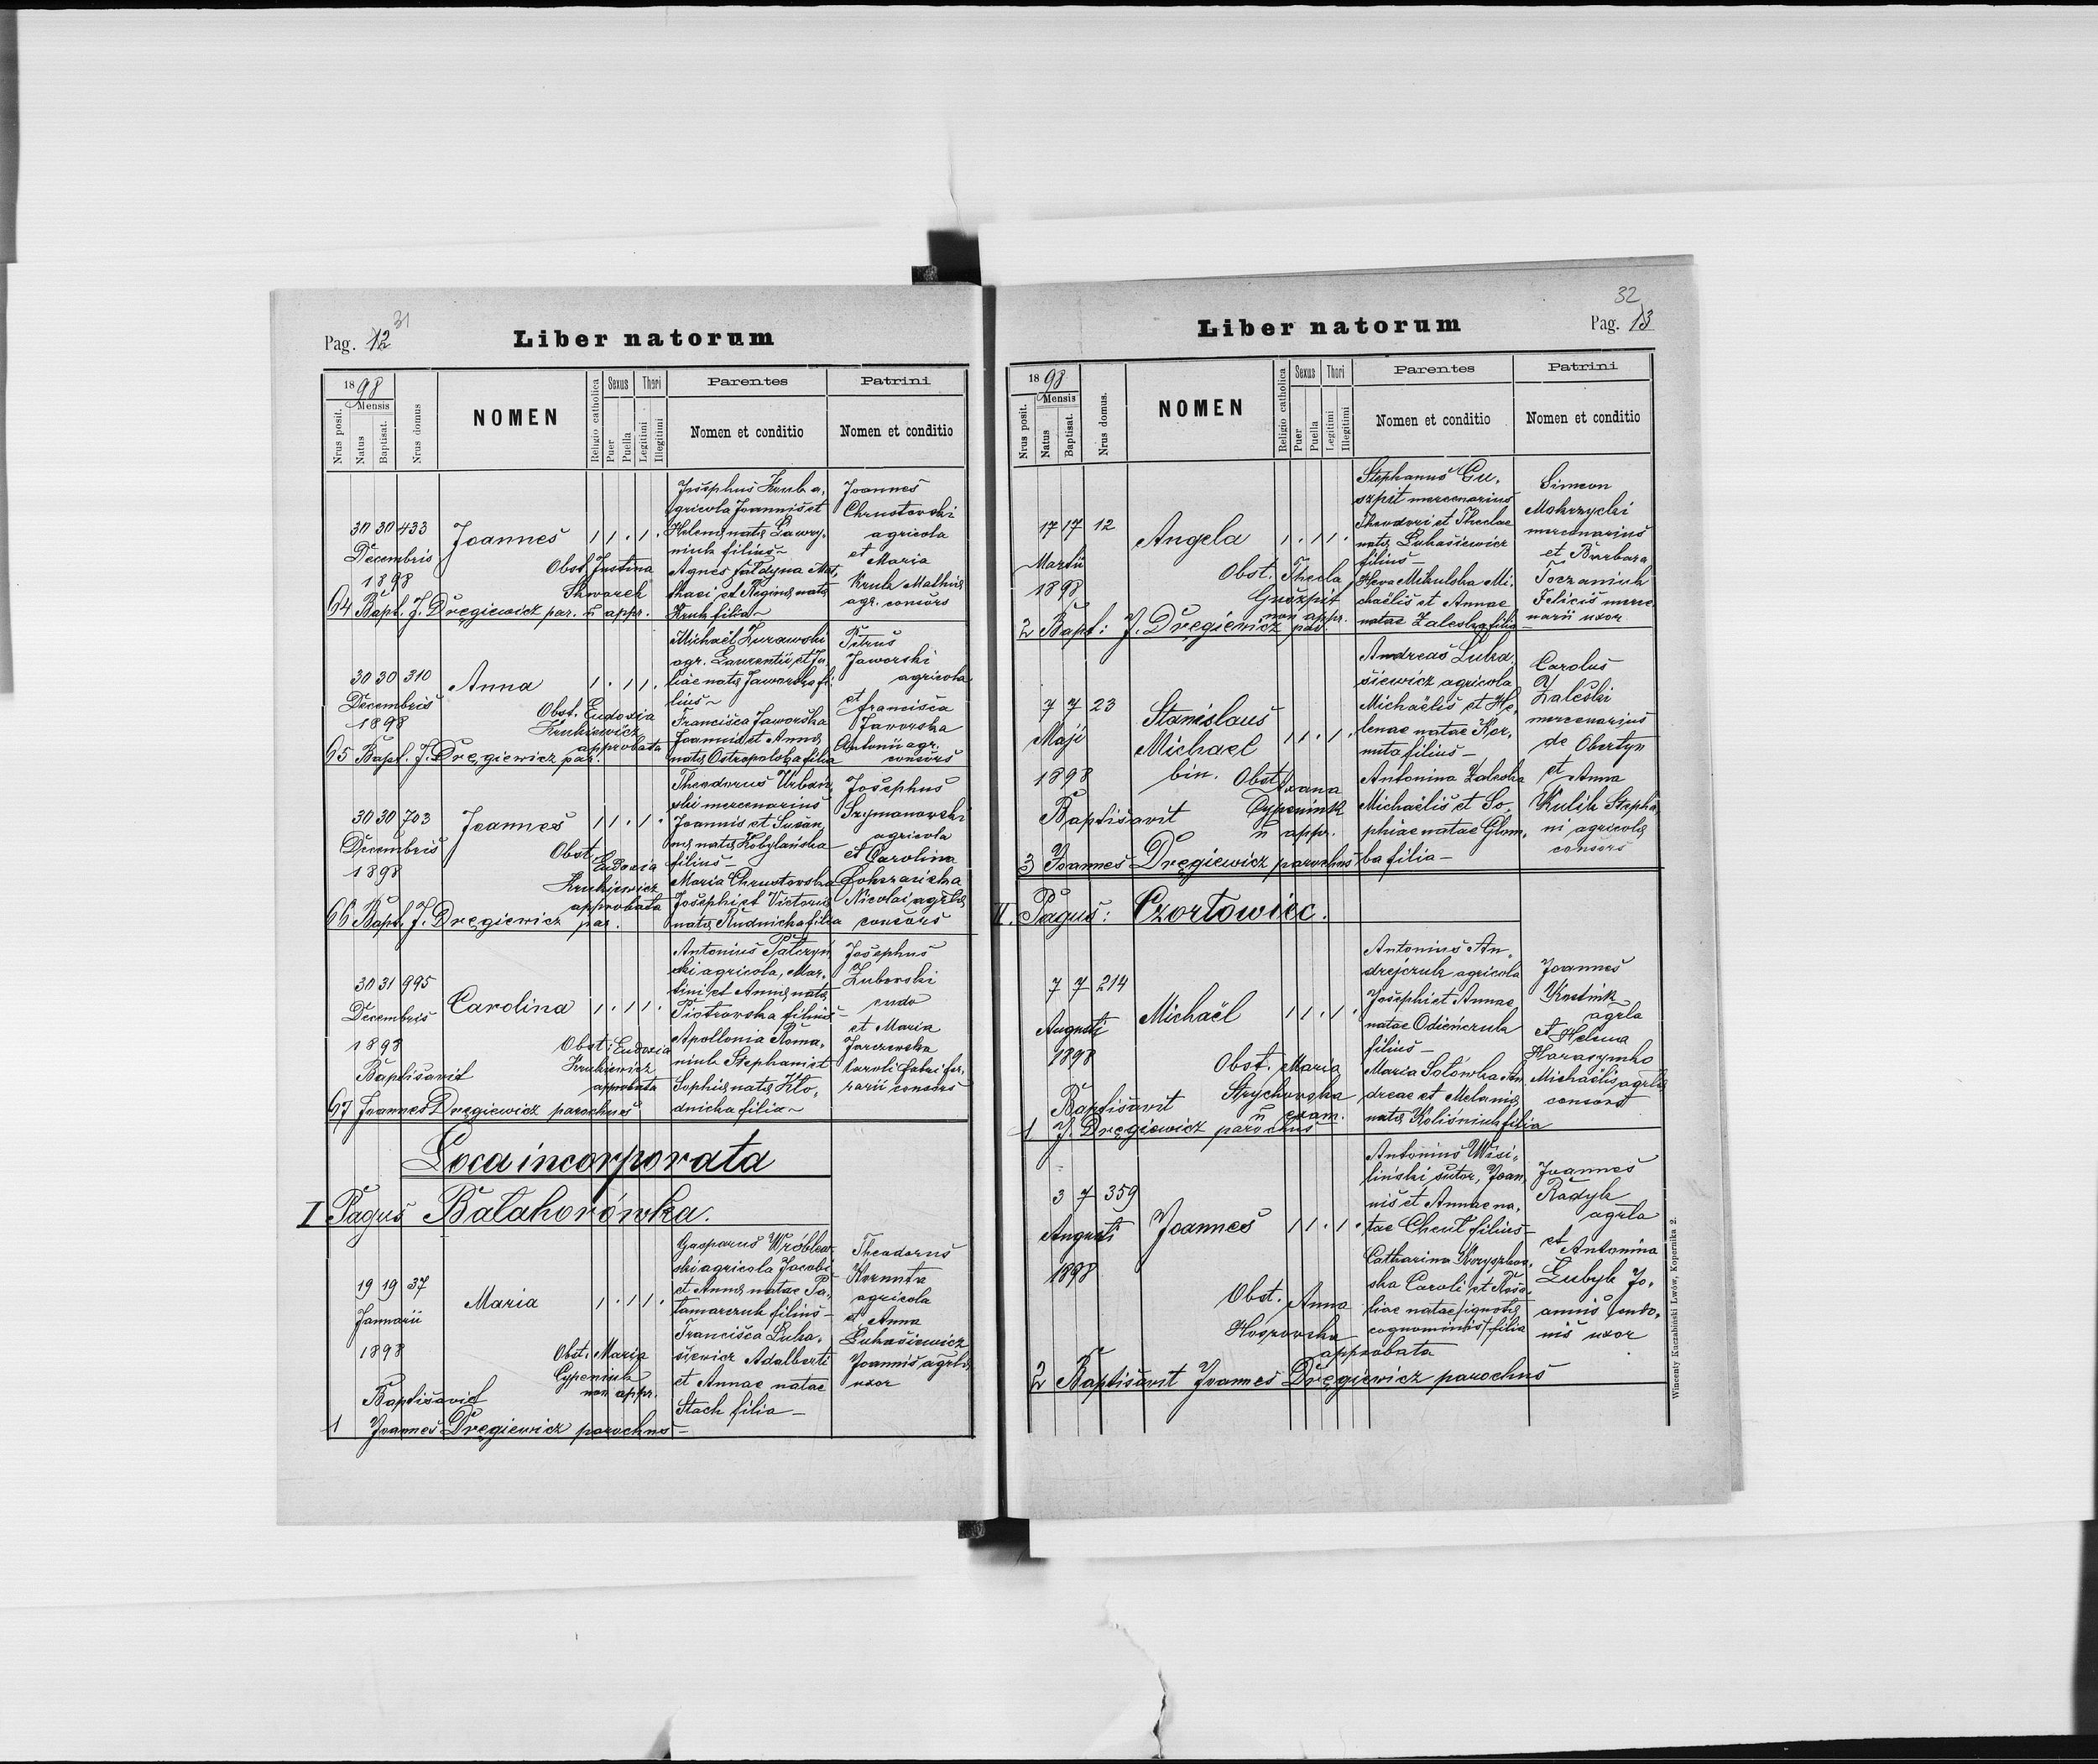 Pag. 12 31
Liber natorum
1898
Mensis
Nrus posit.
Natus
Baptisat.
Nrus domus
NOMEN
Religio catholica
Sexus
Puer
Puella
Thori
Legitimi
Illegitimi
Parentes
Nomen et conditio
Patrini
Nomen et conditio
30 30 433
Decembris
1898
Joannes
1 1 . 1 .
Obst. Justina
Skwarek
n appr.
64 Bapt. J. Dręgiewicz par.
Josephus Kruk a,
gricola Joannis et
Helenæ natæ Ławry,
niuk filius ~
Agnes Fałdyna Mat,
thaei et Reginæ natæ
Kruk filia ~
Joannes
Chrustovski
agricola
et
Maria
Kruk Mathiæ
agr. consors
30 30 310
Decembris
1898
Anna
1 . 1 1 .
Obst. Eudoxia
Krukiewicz
approbata
65 Bapt. J. Dręgiewicz par.
Michaël Żurawski
agr. Laurentii et Ju,
liae natæ Jaworska fi,
lius ~
Francisca Jaworska
Joannis et Annæ
natæ Ostropolska filia
Petrus
Jaworski
agricola
et
Francisca
Jaworska
Antonii agr.
consors
30 30 703
Decembris
1898
Joannes
1 1 . 1 .
Obst.
Eudoxia
Krukiewicz
approbata
66 Bapt. J. Dręgiewicz par.
Theodorus Urbań,
ski mercenarius
Joannis et Susan,
næ natæ Kobylańska
filius —
Maria Chrustovska
Josephi et Victoriæ
natæ Rudnicka filia
Josephus
Szymanowski
agricola
et Carolina
Nicolai agrlæ
consors
30 31 995
Decembris
1898
Carolina
1 . 1 1 .
Obst: Eudoxia
Krukiewicz
approbata
Baptisavit
67 Joannes Dręgiewicz parochus
Antonius Patczyń
ski agricola, Mar,
tini et Annæ natæ
Piotrovska filius —
Apollonia Roma,
niuk Stephani et
Sophiæ natæ Kło,
dnicka filia ~
Josephus
Zuborski
cudo
et Maria
Jarczewska
Caroli fabri fer,
rarii consors
Loca incorporata
I Pagus Bałahorówka.
19 19 37
Januarii
1898
Maria
1 . 1 1 .
Obst. Maria
Cypeniuk
non appr.
Baptisavit
1 Joannes Dręgiewicz parochus —
Gasparus Wróblew
ski agricola Jacobi
et Annæ natae Pa,
łamarczuk filius —
Francisca Łuka,
siewicz Adalberti
et Annae natae
Stach filia —
Theodorus
Kornuta
agricola
et Anna
Łukasiewicz
Joannis agrlæ
uxor
32
Pag. 13
Liber natorum
1898
Mensis
Nrus posit.
Natus
Baptisat.
Nrus domus.
NOMEN
Religio catholica
Sexus
Puer
Puella
Thori
Legitimi
Illegitimi
Parentes
Nomen et conditio
Patrini
Nomen et conditio
17 17 12
Martii
1898
Angela
1 . 1 1 .
Obst. Thecla
Guszpit
non appr.
2 Bapt: J. Dręgiewicz par.
Stephanus Gu,
szpit mercenarius
Theodori et Theclae
natæ Łukasiewicz
filius —
Heva Mikulska Mi,
chaëlis et Annae
natae Zaleska filia
Simeon
Mokrzycki
mercenarius
et Barbara
Toczaniuk
Felicis merce,
narii uxor
7 7 23
Maji
1898
Stanislaus
Michael
bin.
1 1 . 1 .
Obst. Axana
Cypeniuk
n appr.
Baptisavit
3 Joannes Dręgiewicz parochus
Andreas Łuka,
siewicz agricola
Michaëlis et He,
lenae natae Kor,
nuta filius —
Antonina Zaleska
Michaëlis et So,
phiae natae Głom,
ba filia —
Carolus
Zaleski
mercenarius
de Obertyn
et Anna
Kulik Stepha,
ni agricolæ
consors
II. Pagus: Czortowiec.
7 7 214
Augusti
1898
Michaël
1 1 . 1 .
Obst. Maria
Strychovska
n exam.
Baptisavit
1 J. Dręgiewicz parochus
Antonius An,
drejczuk agricola
Josephi et Annae
natae Odieńczuk
filius —
Maria Sołówka An
dreae et Melaniæ
natæ Koliśniuk filia
Joannes
agrla
et Helena
Harasymko
Michaëlis agrlæ
consors
3 7 359
Augusti
1898
Joannes
1 1 . 1 .
Obst. Anna
approbata
2 Baptisavit Joannes Dręgiewicz parochus
Antonius Wisi,
liński sutor, Joan
nis et Annae na,
tae Cheut filius —
Catharina
ska Caroli et Rosa,
liae natae /ignotæ
cognominis/ filia
Joannes
Radyk
agrla
et Antonina
Łubyk Jo,
annis cudo,
nis uxor
Wincenty Kuczabiński Lwów, Kopernika 2.